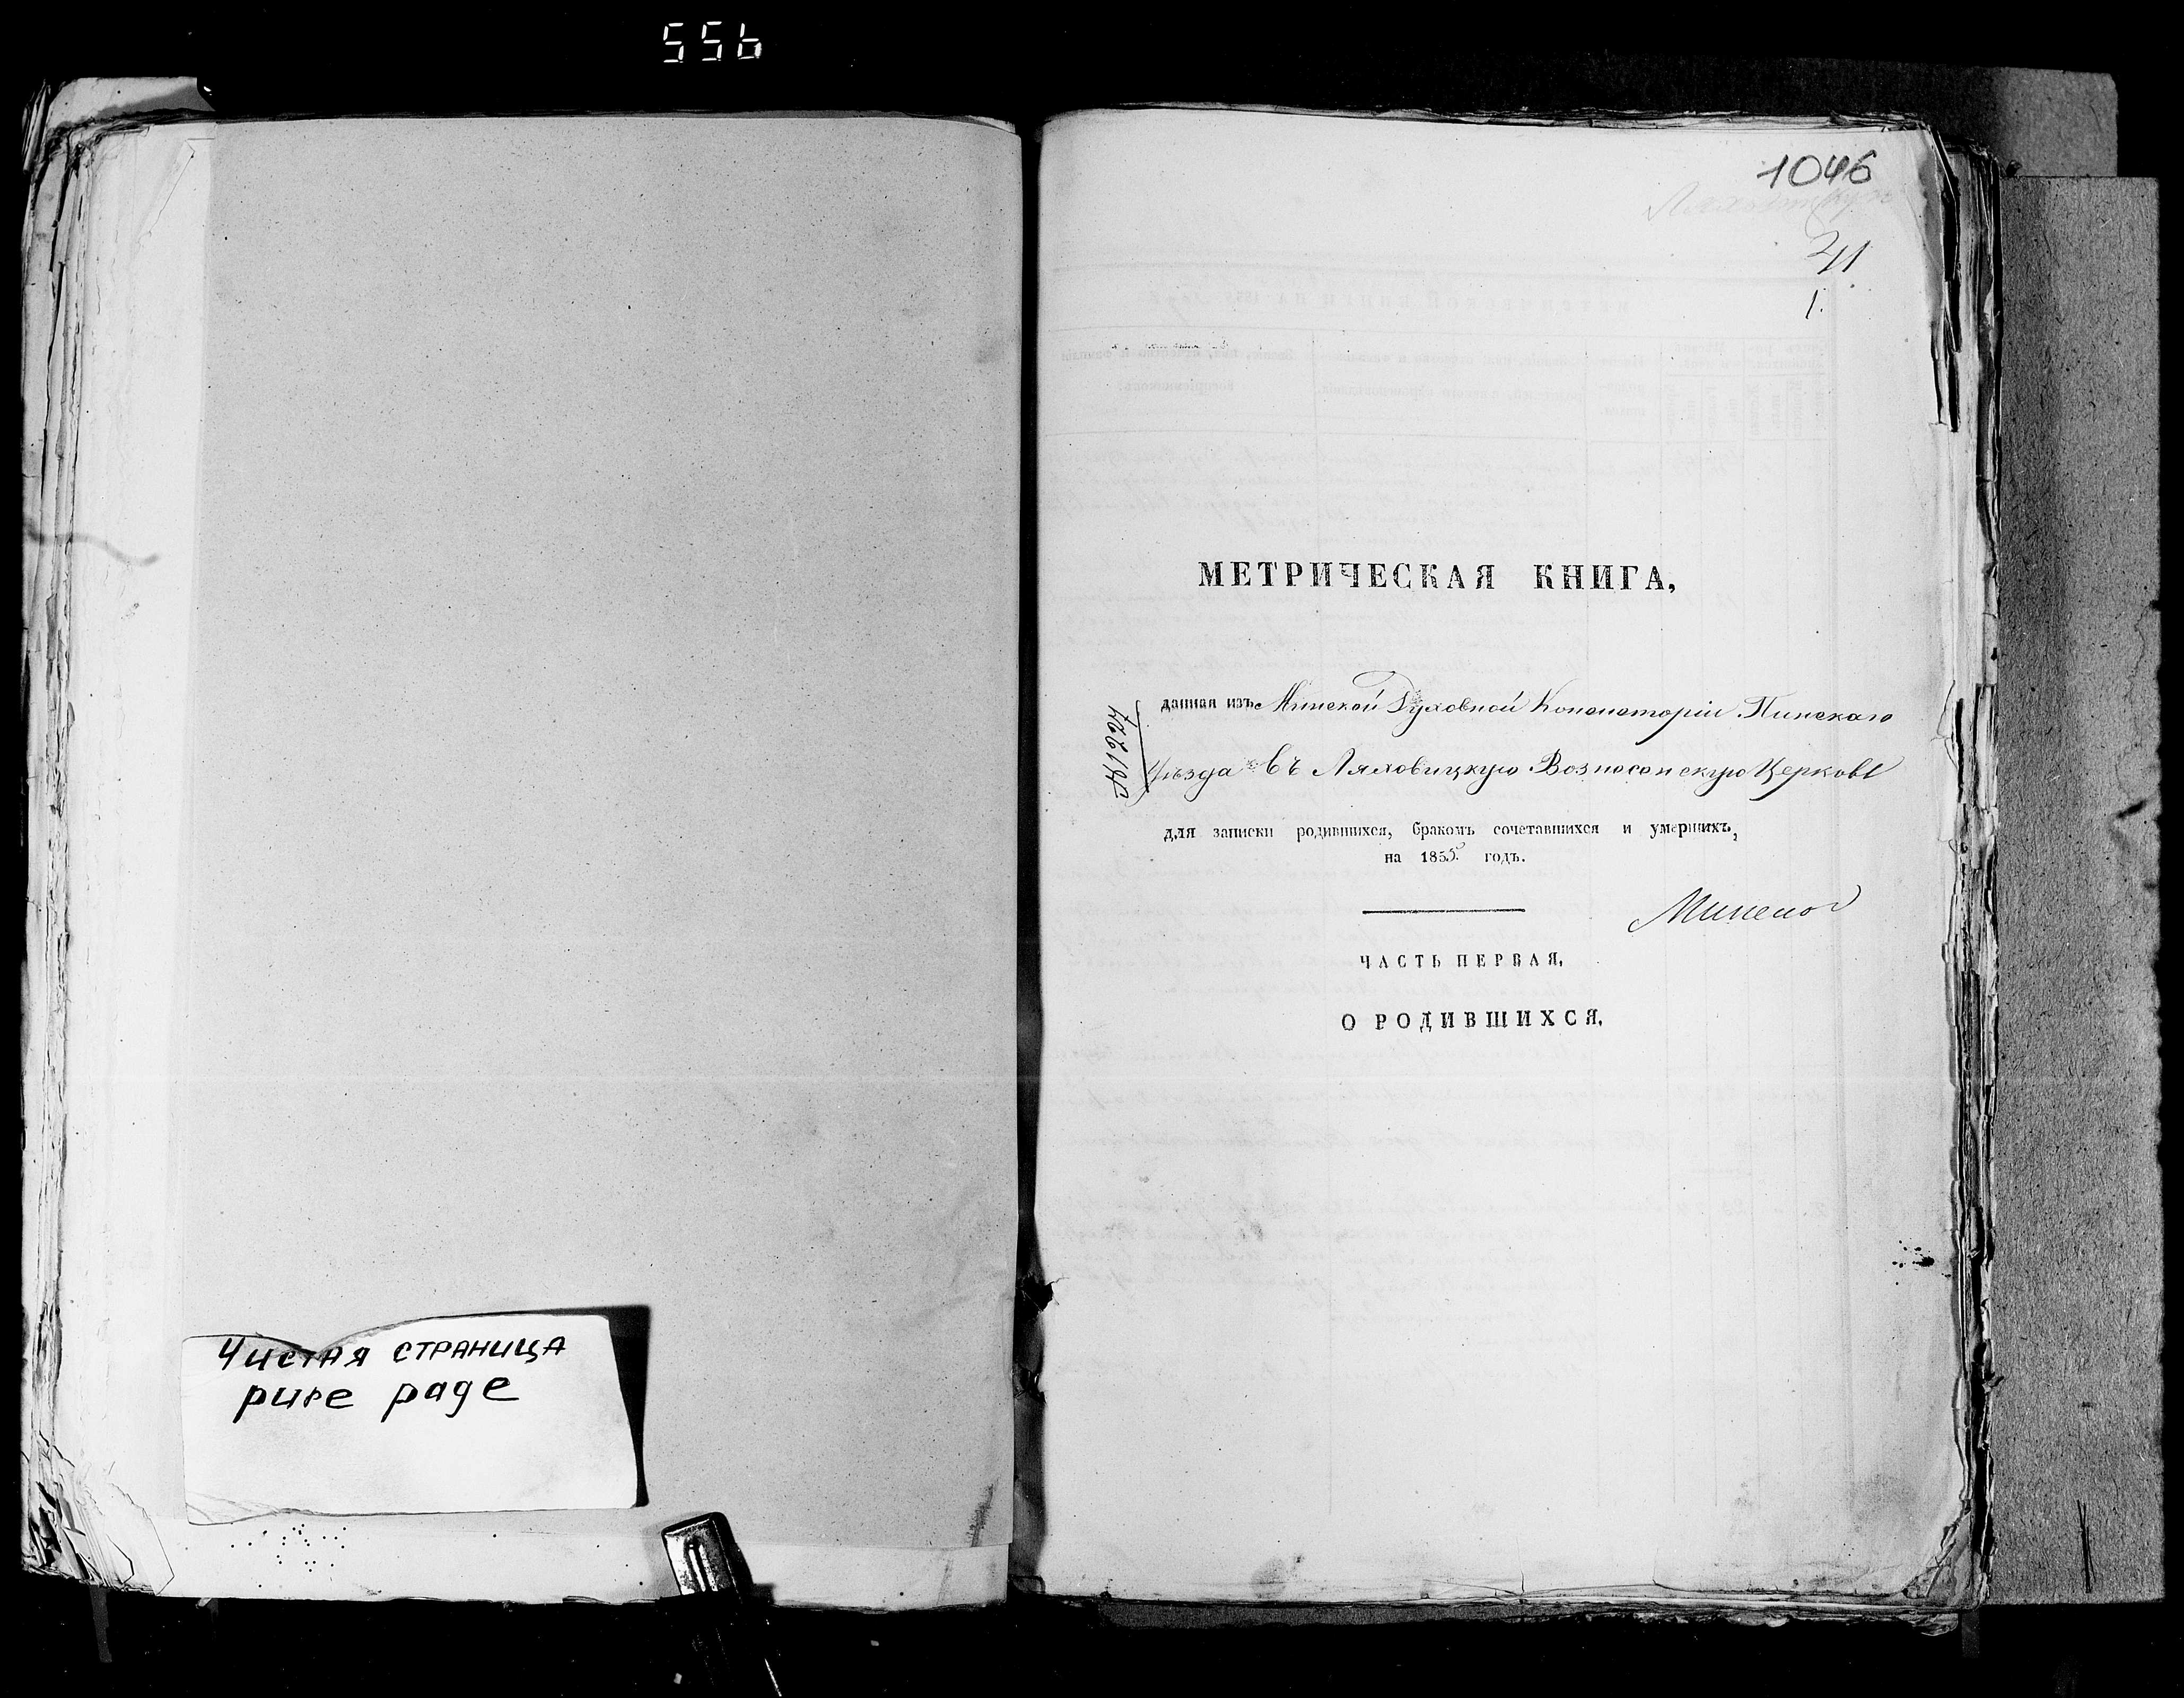 556
Чистая страница
pure page
1046
41
1.
МЕТРИЧЕСКАЯ КНИГА,
данная изъ Минской Духовной Консисторіи Пинскаго
Уѣзда въ Ляховицкую Вознесенскую Церковь
для записки родившихся, бракомъ сочетавшихся и умершихъ,
на 1855 годъ.
ЧАСТЬ ПЕРВАЯ,
О РОДИВШИХСЯ.